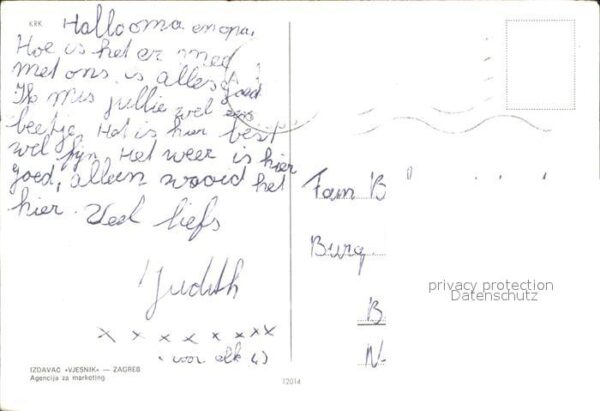 KRK
Hallo oma en opa.
Hoe is het er mee
met ons is alles goed!
Ik mis jullie wel een
beetje. Het is hier best
wel fyn. Het weer is hier
goed, alleen waaid het
hier. Veel liefs
Judith
x x x x x x x x
voor elk 4)
Fam B
Burg
B
N
privacy protection
Datenschutz
IZDAVAČ »VJESNIK« — ZAGREB
Agencija za marketing
12014